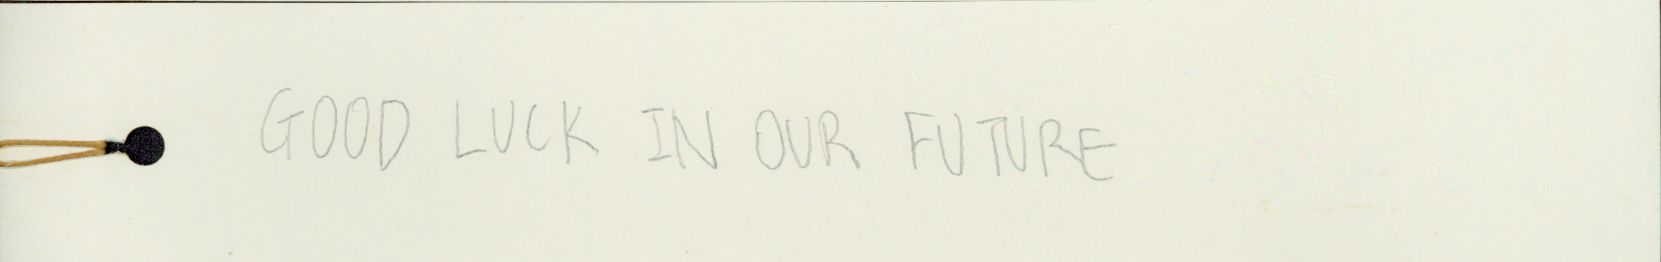 GOOD LUCK IN OUR FUTURE